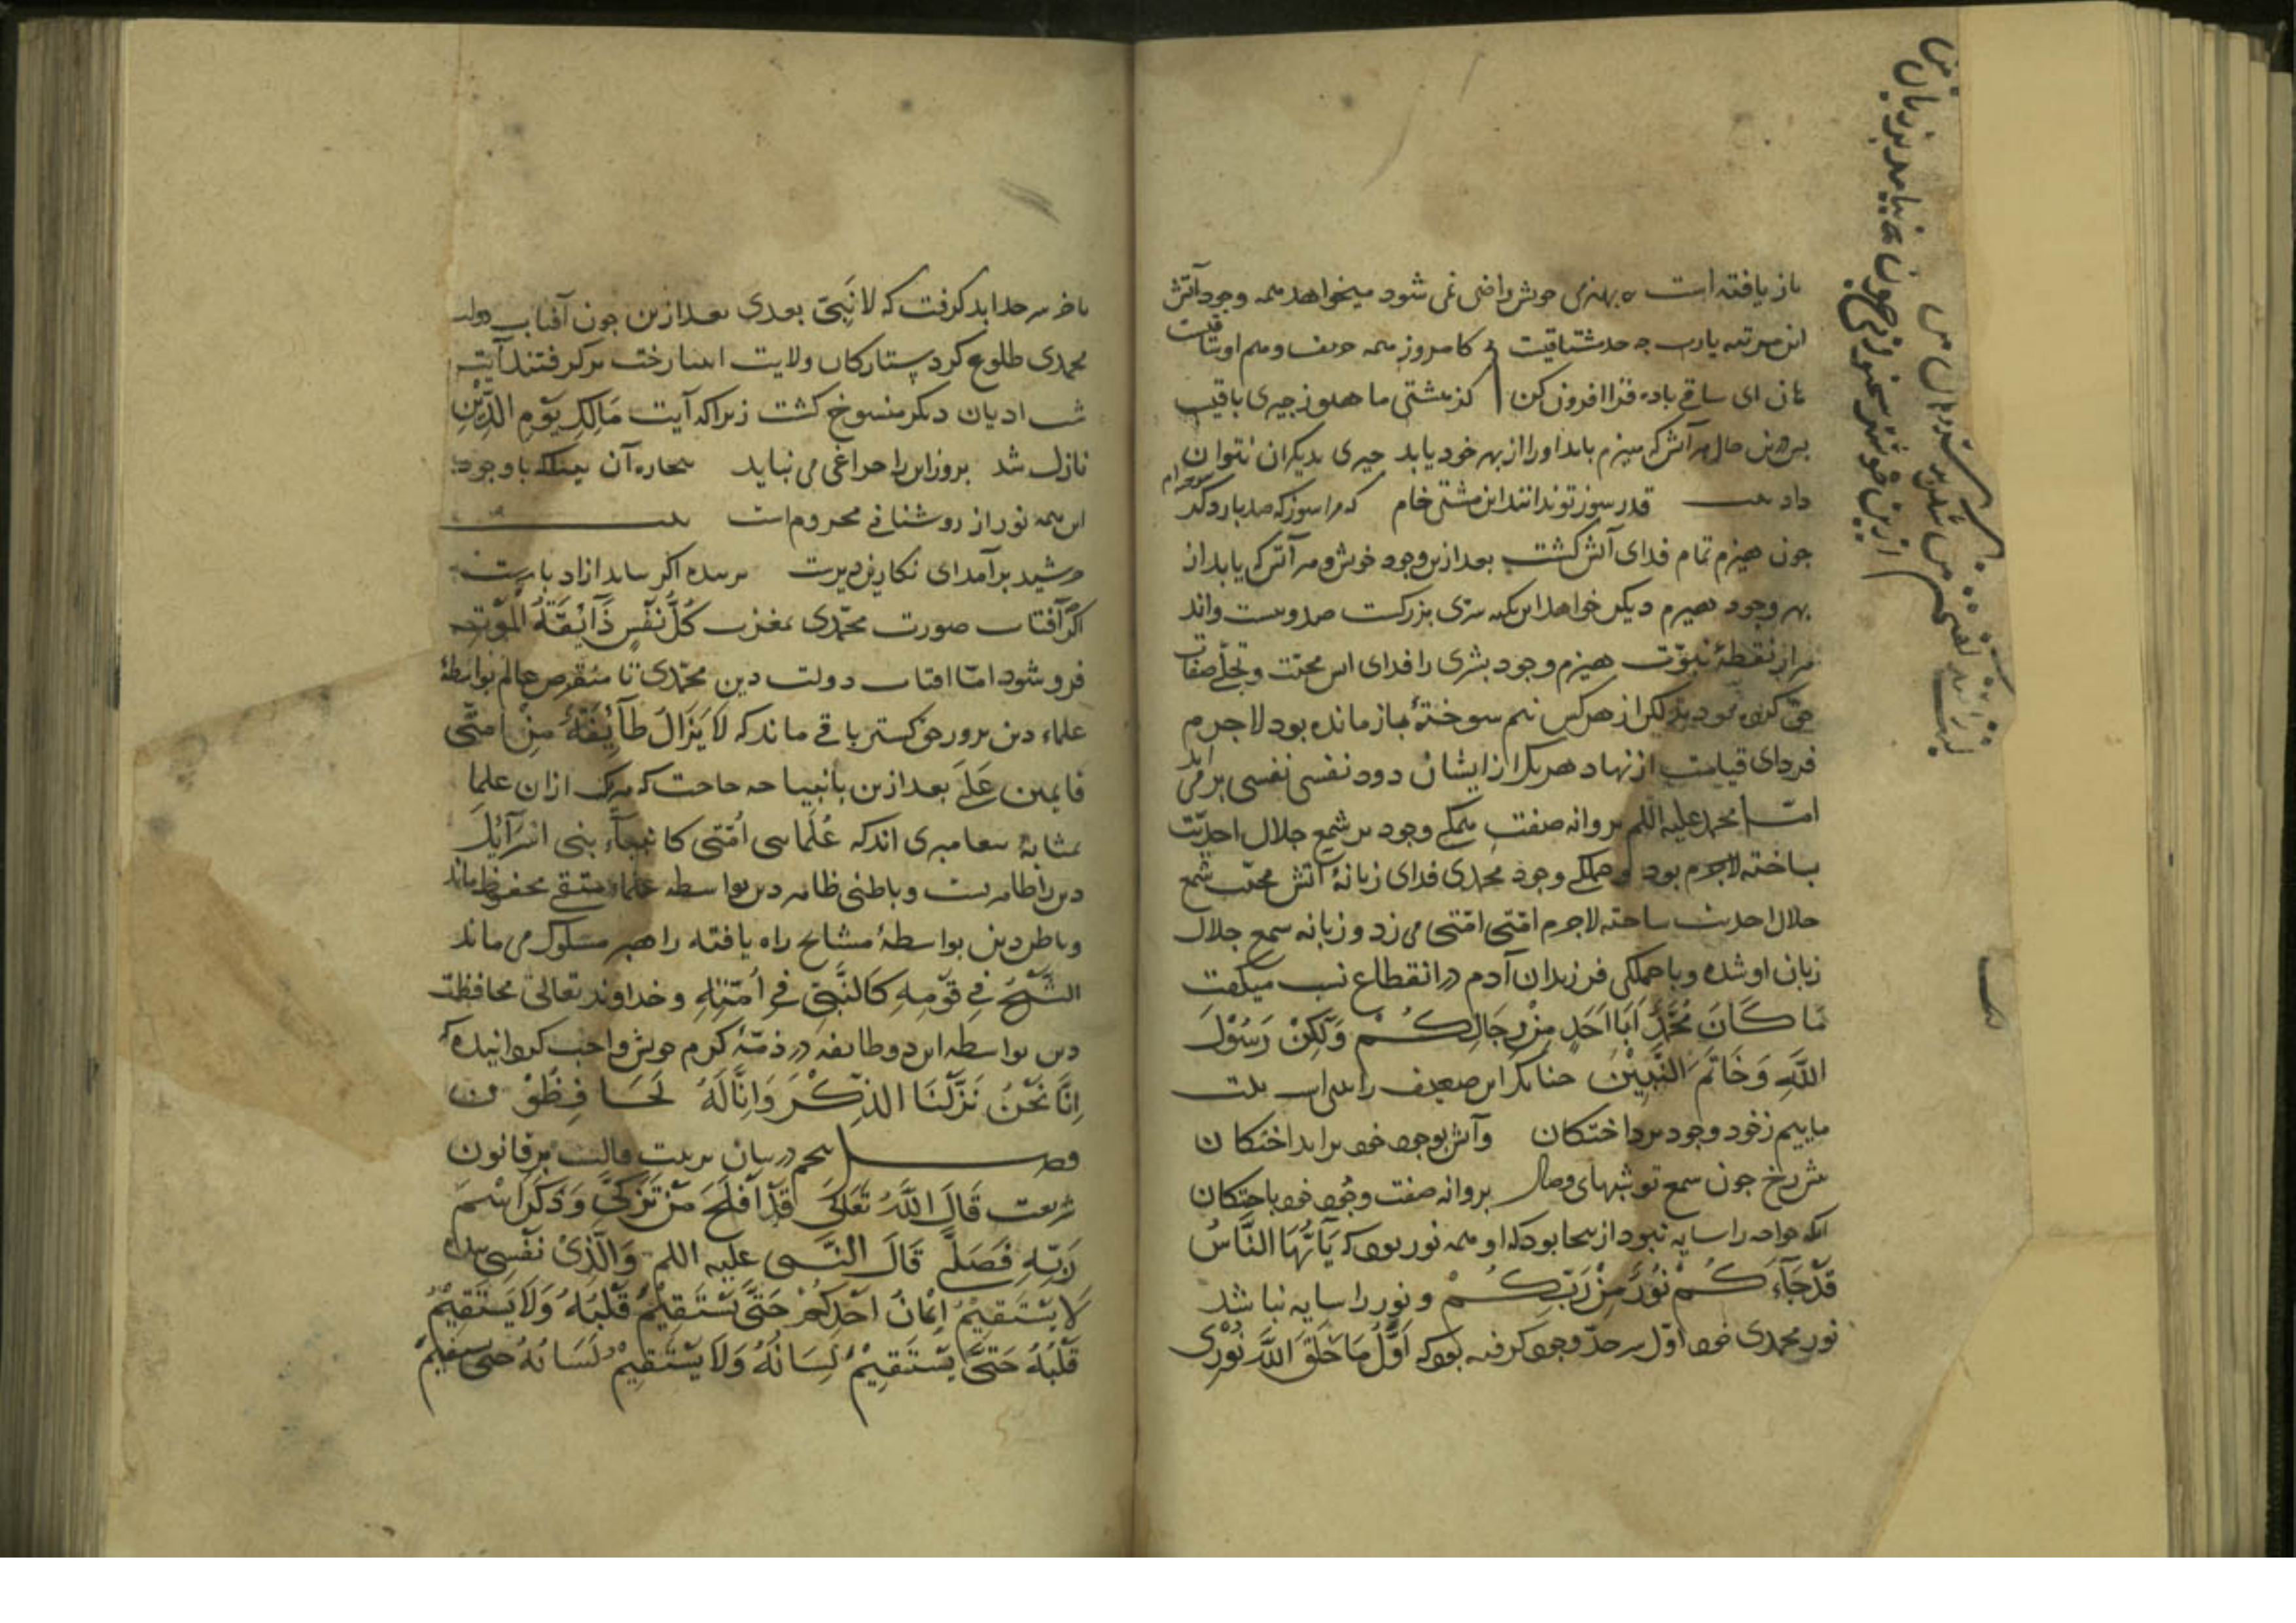 باز یافته است بهیزمی خویش راضی نمی شود میخواهد همه وجود آتش
این مرتبه یارب چه حد مشتاقیست کامروز همه حریف و هم او ساقیست
هان ای ساقی باده فرا افزون کن کز هستی ما هنوز چیزی باقیست
پس درین حال هر آتش که هیزم یابد او را از بهر خود یابد چیزی بدیگران نتوان
داد بیت قدر سوز تو ندانند ازین مشتی خام که مرا سوز که صد بار دگر سوخته ام
چون هیزم تمام فدای آتش گشت بعد ازین وجود خویش و هر آتش که یابد از
بهر وجود هیزم دیگر خواهد این نکته سری بزرگست صد و بیست و اند
هزار نقطهٔ نبوّت هیزم وجود بشری را فدای آتش محبّت و تجلّی صفات
حق کرده بودند لیکن از هر کس نیم سوختهٔ باز مانده بود لاجرم
فردای قیامت از نهاد هر یک از ایشان دود نفسی نفسی برمی آید
امّا محمد علیه السلم پروانه صفت همگی وجود بر شمع جلال احدیّت
باخته بود و همگی وجود محمدی فدای زبانهٔ آتش محبّت شمع
جلال احدیت ساخته لاجرم امّتی امّتی می زد و زبانه شمع جلال
زبان او شده و با جملگی فرزندان آدم در انقطاع نسب میگفت
مَا كَانَ مُحَمَّدٌ اَبَا اَحَدٍ مِنْ رِجَالِكُمْ وَلَكِنْ رَسُوْلَ
اللَّهِ وَخَاتَمَ النَّبِيّيْنَ چنانکه این ضعیف راست بیت
ماییم ز خود وجود پرداختگان وآتش بوجود خود برانداختگان
پیش رخ چون شمع تو شبهای وصال پروانه صفت وجود خود باختگان
آنکه خواجه را سایه نبود از ینجا بود که او همه نور بود که يَا اَيُّهَا النَّاسُ
قَدْ جَآءَكُمْ نُوْرٌ مِنْ رَبِّكُمْ و نور را سایه نباشد
نور محمدی خود اوّل سر حدّ وجود گرفته بود که اَوَّلُ مَا خَلَقَ اللَّهُ نُوْرِى
تاخر سر حد ابد گرفت که لَا نَبِىَّ بعدى بعد ازین چون آفتاب دولت
محمدی طلوع کرد ستارگان ولایت انبیا رخت برگرفتند آیت
شب ادیان دیگر منسوخ گشت زیرا که آیت مَالِكِ يَوْمِ الدِّيْنِ
نازل شد بروز این را چراغی می نباید بیچاره آن کسیکه با وجود
این همه نور از روشنائی محروم است بیت
خورشید برآمد ای نگارین دیرست بر بنده اگر نتابد از ادبارست
اگر آفتاب صورت محمّدی بمغرب كُلُّ نَفْسٍ ذَآئِقَةُ الْمَوْتِ
فرو شود امّا آفتاب دولت دین محمّدی تا منقرض عالم بواسطهٔ
علماء دین پرور حق گستر باقی ماند که لَا يَزَالُ طَآئِفَةٌ مِنْ اُمَّتِى
قائمین عَلَى بعد ازین بانبیا چه حاجت که هریک از ان علما
بمثابهٔ پیغامبری اند که عُلَمَاءُ اُمَّتِى كَانبِيَآءِ بَنِى اسْرَآئِيْلَ
دین را ظاهریست و باطنی ظاهر دین بواسطه علماء متقی محفوظ ماند
و باطن دین بواسطهٔ مشایخ راه یافته راهبر مسلوک می ماند
الشَّيْخُ فِى قَوْمِهِ كَالنَّبِىِّ فِى اُمَّتِهِ و خداوند تعالی محافظت
دین بواسطه این دو طایفه در ذمّهٔ کرم خویش واجب گردانیده که
اِنَّا نَحْنُ نَزَّلْنَا الذِّكْرَ وَاِنَّا لَهُ لَحَافِظُوْنَ
فصل پنجم در بیان تربیت قالب بر قانون
شریعت قَالَ اللَّهُ تَعَالَى قَدْ اَفْلَحَ مَنْ تَزَكَّى وَذَكَرَ اسْمَ
رَبِّهِ فَصَلَّى قَالَ النَّبِى علیه السلم وَالَّذِىْ نَفْسِى بيده
لَا يَسْتَقِيْمُ اِيْمَانُ اَحَدِكُمْ حَتَّى يَسْتَقِيْمَ قَلْبُهُ وَلَا يَسْتَقِيْمُ
قَلْبُهُ حَتَّى يَسْتَقِيْمَ لِسَانُهُ وَلَا يَسْتَقِيْمُ لِسَانُهُ حَتَّى يستقيم